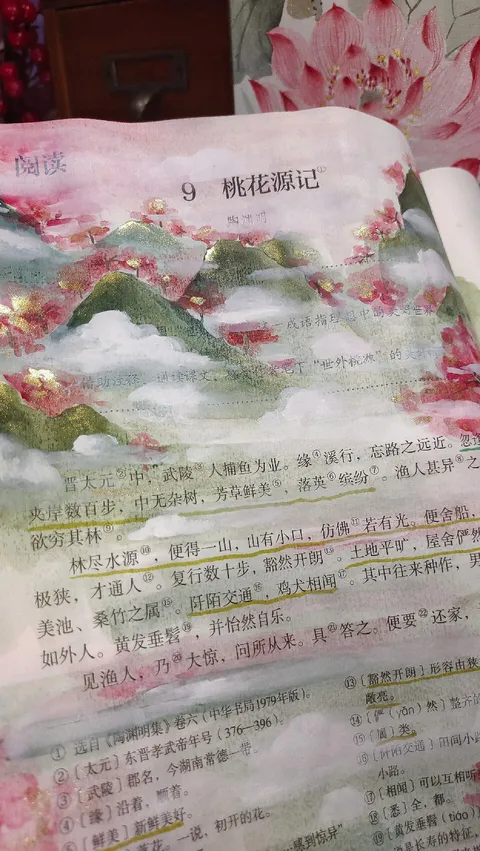 阅读
9 桃花源记①
陶渊明
成语指
借助注释，通读课文，
下“世外桃源”的
晋太元②中，武陵③人捕鱼为业。缘④溪行，忘路之远近。忽逢
夹岸数百步，中无杂树，芳草鲜美⑤，落英⑥缤纷⑦。渔人甚异⑧之
欲穷其林⑨。
林尽水源⑩，便得一山，山有小口，仿佛⑪若有光。便舍船，
极狭，才通人⑫。复行数十步，豁然开朗⑬。土地平旷，屋舍俨然
美池、桑竹之属⑮。阡陌交通⑯，鸡犬相闻⑰。其中往来种作，男
如外人。黄发垂髫⑲，并怡然自乐。
见渔人，乃⑳大惊，问所从来。具㉑答之。便要㉒还家，
① 选自《陶渊明集》卷六（中华书局1979年版）。
②〔太元〕东晋孝武帝年号（376—396）。
③〔武陵〕郡名，今湖南常德一带。
④〔缘〕沿着，顺着。
⑤〔鲜美〕新鲜美好。
落花。一说，初开的花。
“感到惊异”
⑬〔豁然开朗〕形容由狭
敞亮。
⑭〔俨（yǎn）然〕整齐的
⑮〔属〕类。
⑯〔阡陌交通〕田间小路
小路。
⑰〔相闻〕可以互相听
⑱〔悉〕全，都。
⑲〔黄发垂髫（tiáo）
说是长寿的特征，